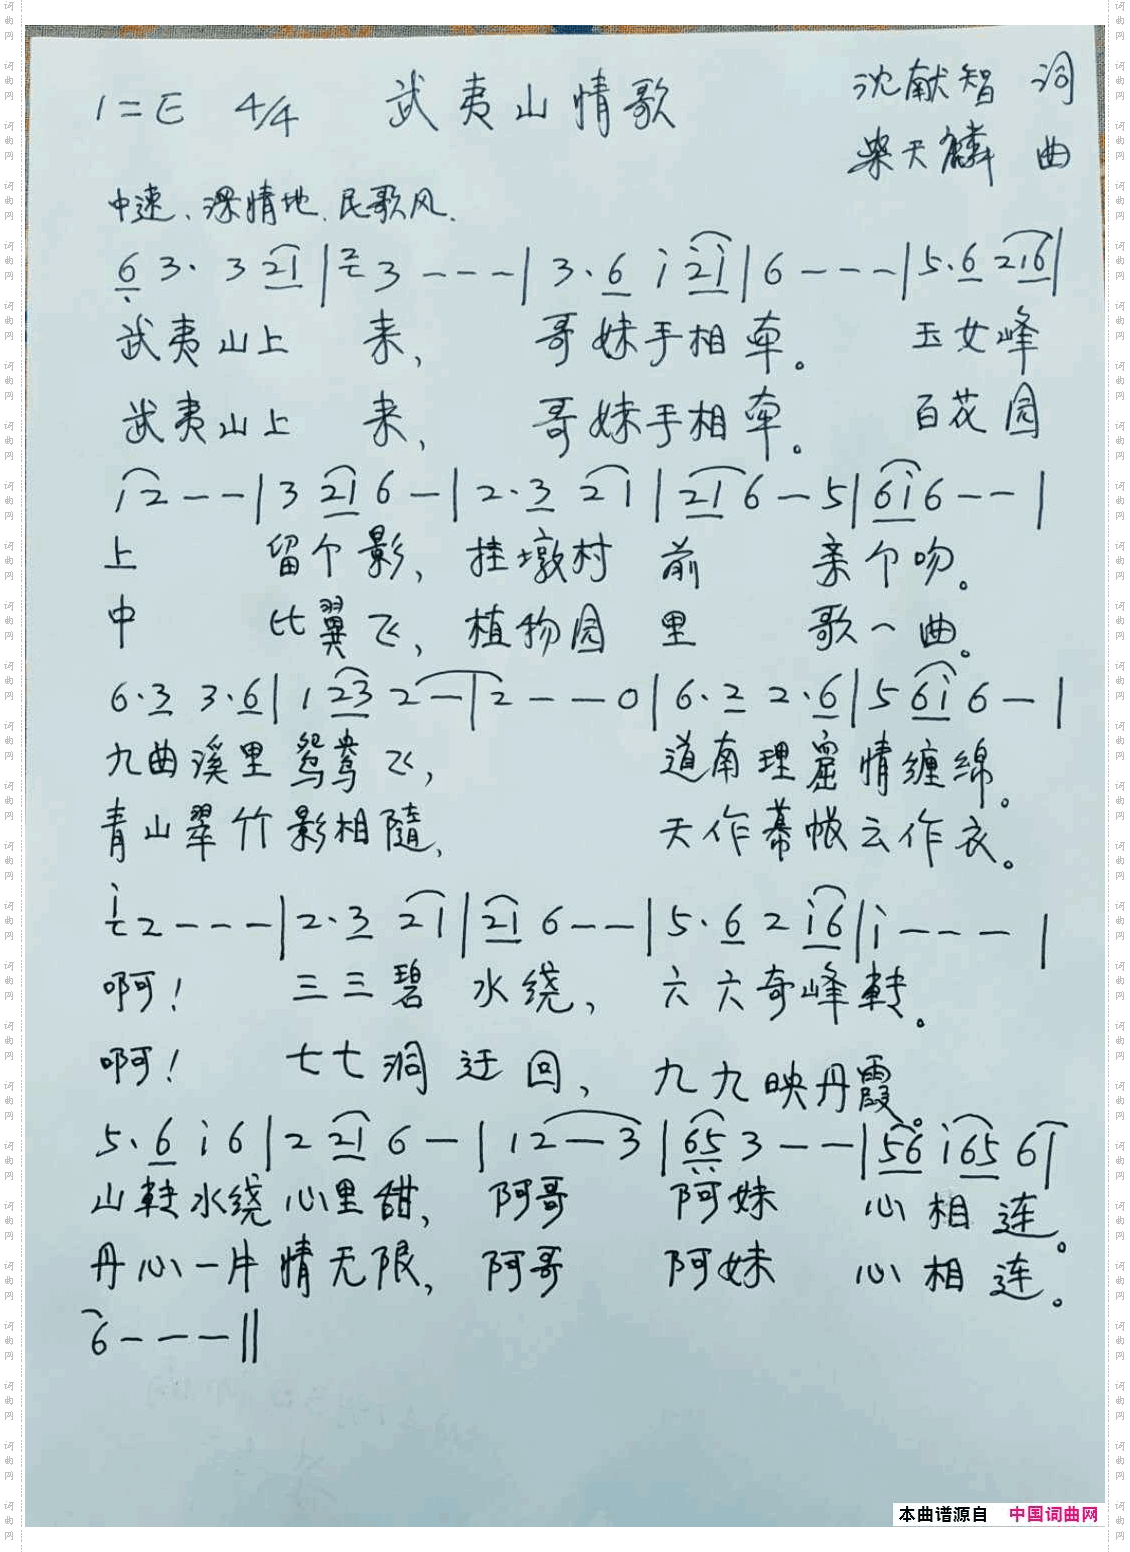 1=E 4/4 武夷山情歌 沈献智 词
柴天麟 曲
中速、深情地、民歌风.
6 3· 3 21 | 2 3 - - - | 3·6 i 2i | 6 - - - | 5·6 2i6 |
武夷山上 来, 哥妹手相牵。 玉女峰
武夷山上 来, 哥妹手相牵。 百花园
i2 - - | 3 21 6 - | 2·3 21 | 21 6 - 5 | 6i 6 - - |
上 留个影, 挂墩村 前 亲个吻。
中 比翼飞, 植物园 里 歌一曲。
6·3 3·6 | 1 23 2 - | 2 - - 0 | 6·2 2·6 | 5 6i 6 - |
九曲溪里鸳鸯飞, 道南理窟情缠绵。
青山翠竹影相随, 天作幕帐云作衣。
i 2 - - - | 2·3 21 | 21 6 - - | 5·6 2 i6 | i - - - |
啊! 三三碧 水绕, 六六奇峰转。
啊! 七七洞 迂回, 九九映丹霞。
5·6 i 6 | 2 21 6 - | 12 - 3 | 65 3 - - | 56 i65 6 |
山转水绕心里甜, 阿哥 阿妹 心相连。
丹心一片情无限, 阿哥 阿妹 心相连。
6 - - - ||
本曲谱源自 中国词曲网